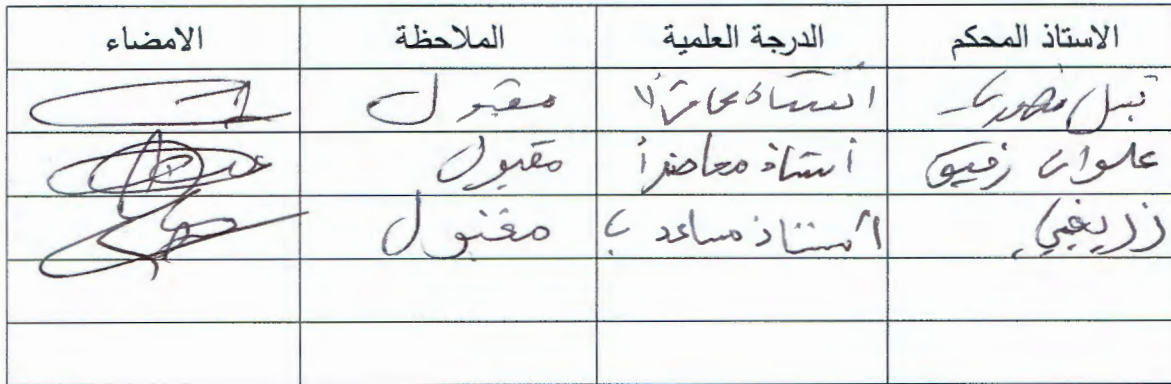 الاستاذ المحكم الدرجة العلمية الملاحظة الامضاء
استاذ محاضر مقبول
علوان رفيق أستاذ محاضر أ مقبول
أستاذ مساعد ب مقبول